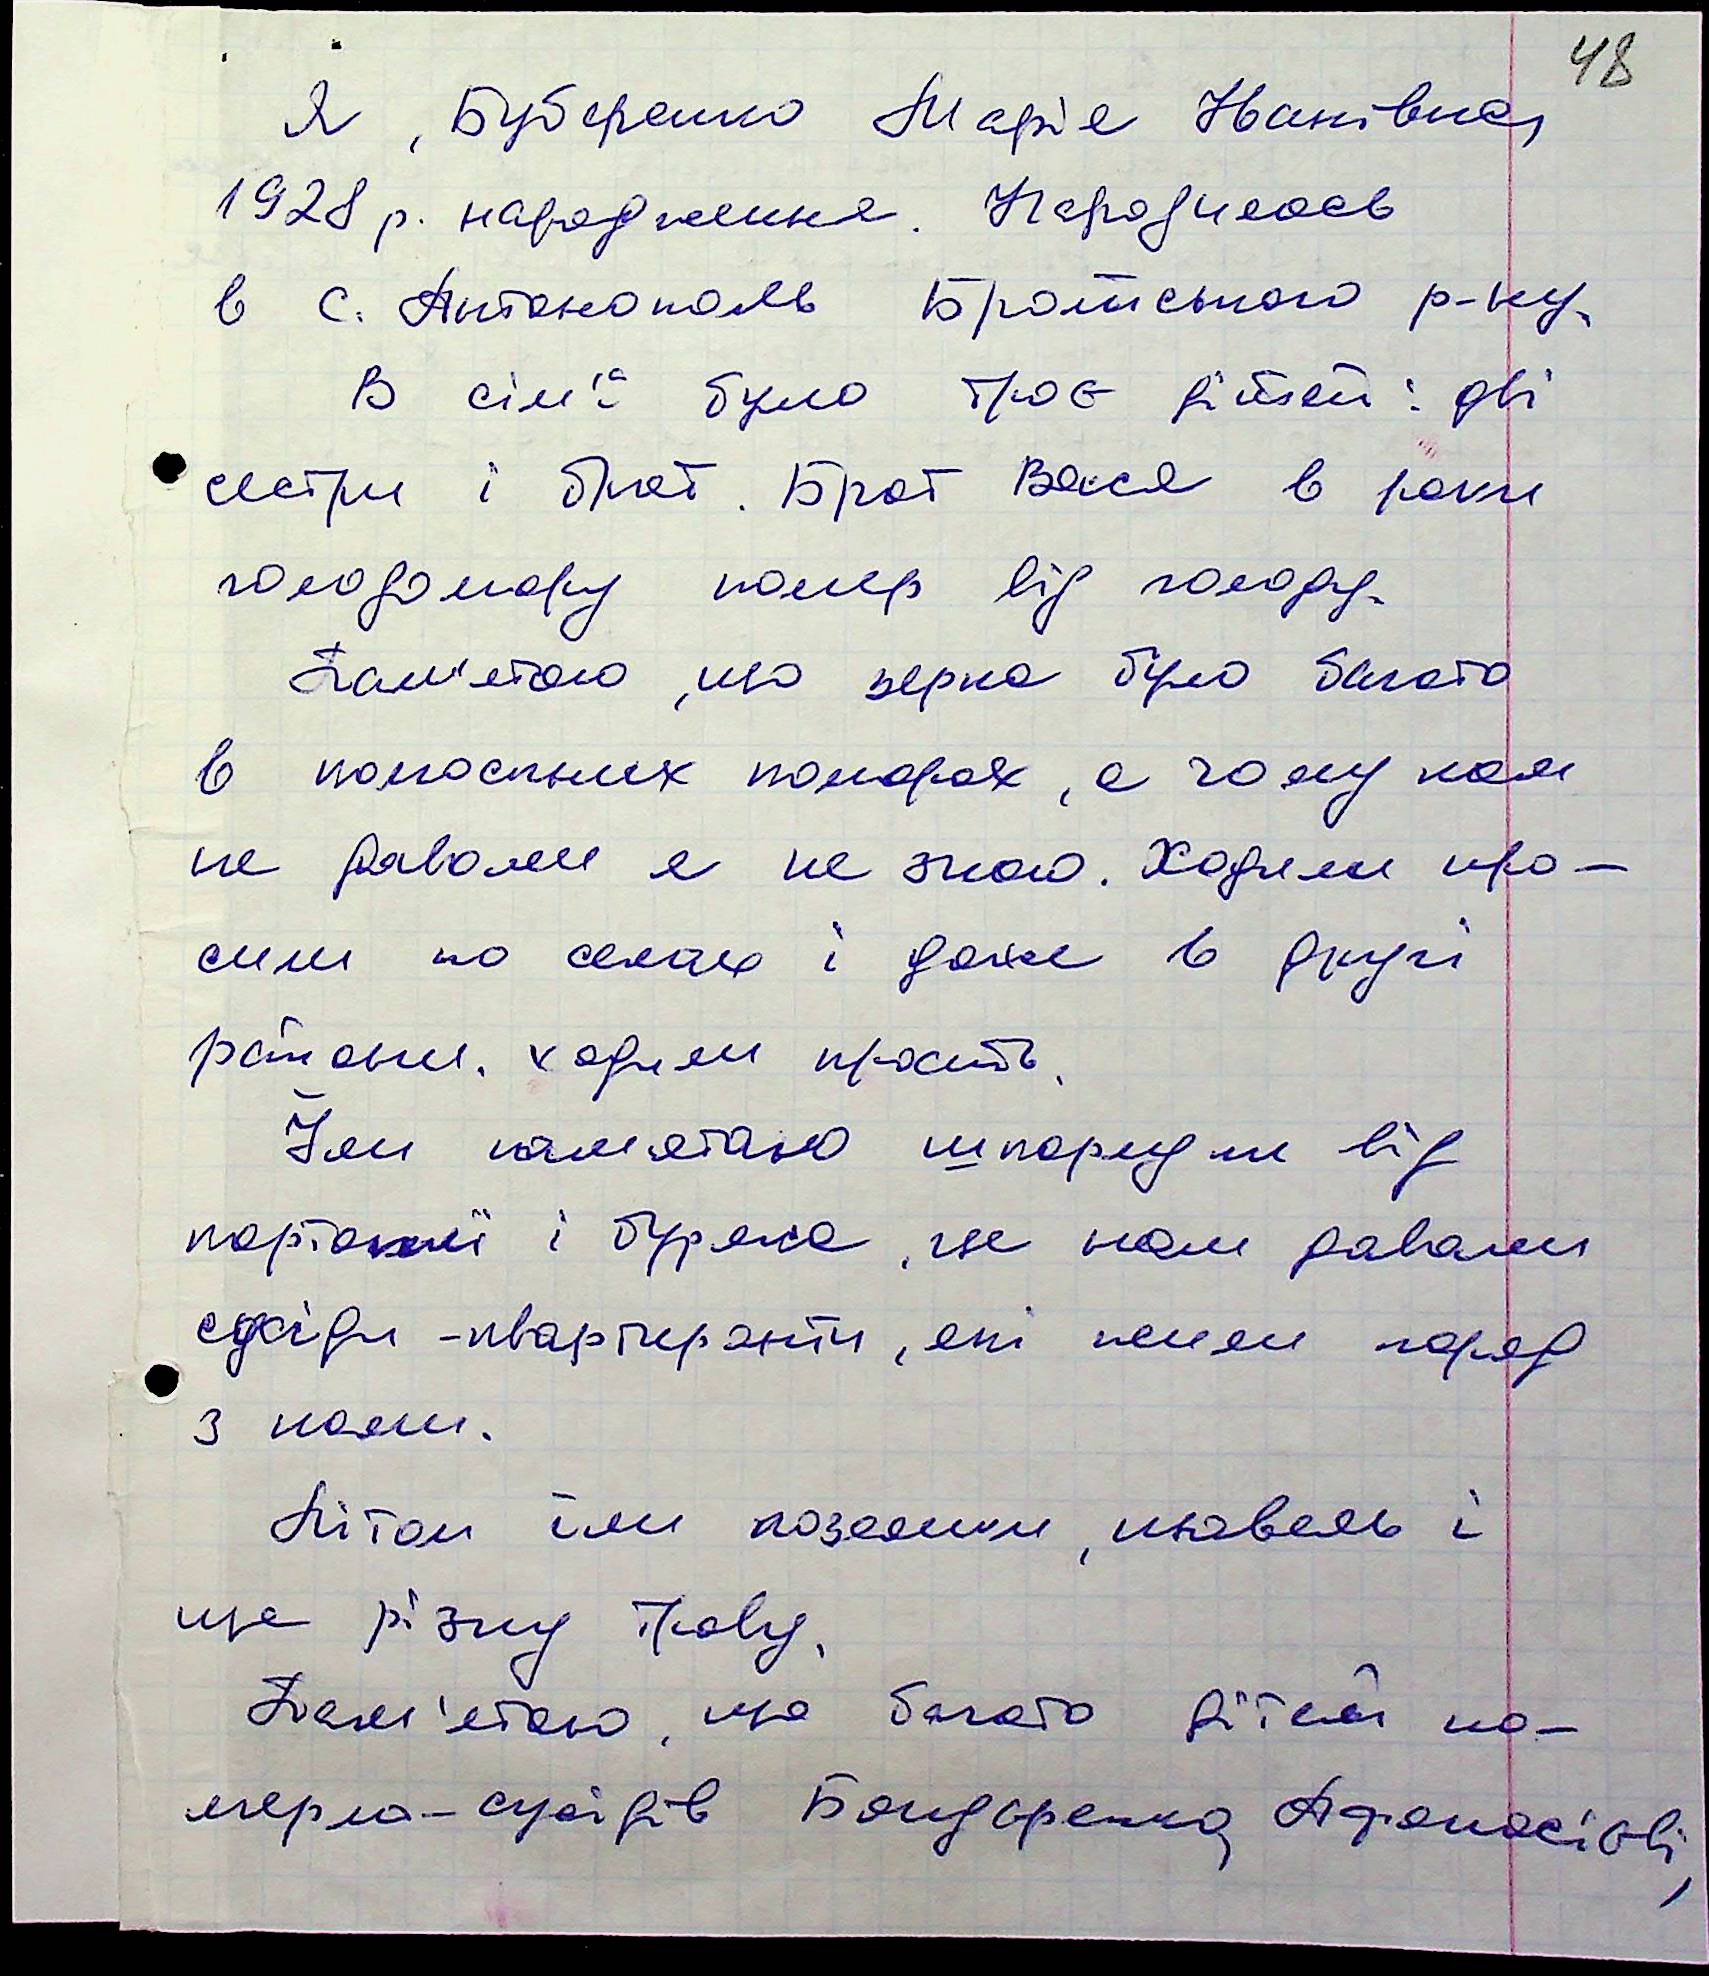 48
Я, Бубаренко Марія Іванівна,
1928 р. народження. Народилась
в с. Антонополь Братського р-ну.
В сім'ї було троє дітей: дві
сестри і брат. Брат Вася в роки
голодомору помер від голоду.
Пам'ятаю, що зерна було багато
в колгоспних коморах, а чому нам
не давали я не знаю. Ходили про-
сили по селах і даже в другі
райони. ходили просить.
Їли пам'ятаю шкорудли від
картоплі і буряка, це нам давали
сусіди -квартиранти, які жили поряд
з нами.
Літом їли козелики, щавель і
ще різну траву.
Пам'ятаю, що багато дітей по-
мерло-сусідів Бондаренка, Афанасієві,